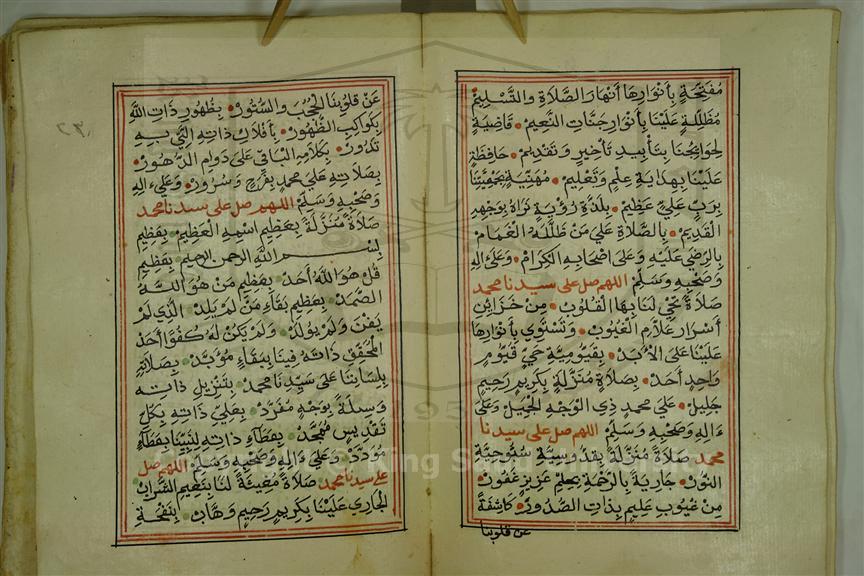 مُفَتِّحَةٍ بِأَنْوَارِهَا أَنْهَارَ الصَّلَاةِ وَالتَّسْلِيمِ
مُظَلِّلَةٍ عَلَيْنَا بِأَنْوَارِ جَنَّاتِ النَّعِيمْ • قَاضِيَةٍ
لِحَوَائِجِنَا بِتَأْبِيدِ تَأْخِيرٍ وَتَقْدِيمْ • حَافِظَةٍ
عَلَيْنَا بِهِدَايَةِ عِلْمٍ وَتَعْلِيمْ • مُهَنِّيَةٍ بِجَمْعِيَّتِنَا
بِرَبٍّ عَلِيٍّ عَظِيمْ • بِلَذَّةِ رُؤْيَةٍ نَرَاهُ بِوَجْهِهِ
الْقَدِيمْ • بِالصَّلَاةِ عَلَى مَنْ ظَلَّلَهُ الْغَمَامْ
بِالرِّضَى عَلَيْهِ وَعَلَى أَصْحَابِهِ الْكِرَامْ • وَعَلَى ءَالِهِ
وَصَحْبِهِ وَسَلِّمْ اللهم صل على سيدنا محمد
صَلَاةً تُحْيِي لَنَا بِهَا الْقُلُوبْ • مِنْ خَزَائِنِ
أَسْرَارِ عَلَّامِ الْغُيُوبْ • وَتَسْتَوِي بِأَنْوَارِهَا
عَلَيْنَا عَلَى الْأَبَدْ • بِقَيُّومِيَّةِ حَيٍّ قَيُّومٍ
وَاحِدٍ أَحَدْ • بِصَلَاةٍ مُنَزَّلَةٍ بِكَرِيمٍ رَحِيمٍ
جَلِيلْ • عَلَى مُحَمَّدٍ ذِي الْوَجْهِ الْجَمِيلْ وَعَلَى
ءَالِهِ وَصَحْبِهِ وَسَلِّمْ اللهم صل على سيدنا
محمد صَلَاةً مُنَزَّلَةً بِقُدُّوسِيَّةِ سُبُّوحِيَّةِ
النُّورْ • جَارِيَةً بِالرَّحْمَةِ بِحِلْمِ عَزِيزٍ غَفُورْ •
مِنْ غُيُوبِ عَلِيمٍ بِذَاتِ الصُّدُورْ • كَاشِفَةً
عن قلوبنا
عَنْ قُلُوبِنَا الْحُجُبَ وَالسُّتُورْ • بِظُهُورِ ذَاتِ اللَّهِ
بِكَوَاكِبِ الظُّهُورْ • بِأَفْلَاكِ ذَاتِهِ الَّتِي بِهِ
تَدُورْ • بِكَلَامِهِ الْبَاقِي عَلَى دَوَامِ الدُّهُورْ •
بِصَلَاتِهِ عَلَى مُحَمَّدٍ بِفَرَحٍ وَسُرُورْ • وَعَلَى ءَالِهِ
وَصَحْبِهِ وَسَلِّمْ اللهم صل على سيدنا محمد
صَلَاةً مُنَزَّلَةً بِعَظِيمِ اسْمِهِ الْعَظِيمْ • بِعَظِيمِ
بِسْمِ اللَّهِ الرَّحْمَنِ الرَّحِيمِ • بِعَظِيمِ
قُلْ هُوَ اللَّهُ أَحَدْ • بِعَظِيمِ مَنْ هُوَ اللَّهُ
الصَّمَدْ • بِعَظِيمِ بَقَاءِ مَنْ لَمْ يَلِدْ • الَّذِي لَمْ
يَفْنَ وَلَمْ يُولَدْ • وَلَمْ يَكُنْ لَهُ كُفُوًا أَحَدْ
الْمُحَقِّقِ ذَاتَهُ فِينَا بِبَقَاءٍ مُؤَبَّدْ • بِصَلَاتِهِ
بِلِسَانِنَا عَلَى سَيِّدِنَا مُحَمَّدْ • بِتَنْزِيلِ ذَاتِهِ
وَسِيلَةً بِوَجْهٍ مُفَرَّدْ • بِعَلِيِّ ذَاتِهِ بِكُلِّ
تَقْدِيسٍ مُمَجَّدْ • بِعَطَاءِ ذَاتِهِ لِنَبِيِّنَا بِعَطَاءٍ
مُؤَدَّدْ • وَعَلَى ءَالِهِ وَصَحْبِهِ وَسَلِّمْ اللهم صل
على سيدنا محمد صَلَاةً مُغِيثَةً لَنَا بِنَعِيمِ الشَّرَابْ
الْجَارِي عَلَيْنَا بِكَرِيمٍ رَحِيمٍ وَهَّابْ • بِنَفْحَةِ